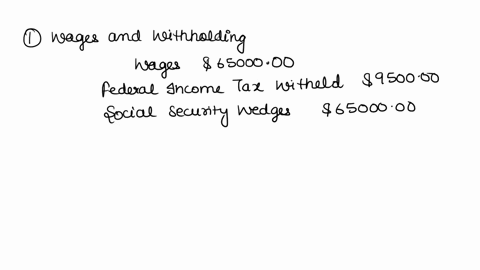 ① Wages and Withholding
Wages $65000.00
Federal Income Tax Witheld $9500.00
Social Security Wedges $65000.00